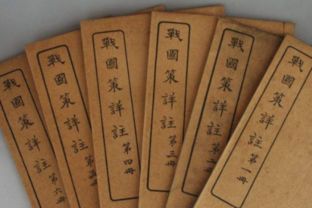 戰國策詳註 第一冊
戰國策詳註 第二
戰國策詳註 第三冊
戰國策詳註 第四冊
戰國策詳註 第
戰國策詳註 第六冊